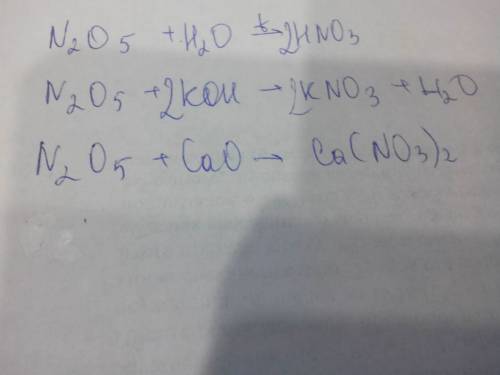 N₂O₅ + H₂O →ᵗ 2HNO₃
N₂O₅ + 2KOH → 2KNO₃ + H₂O
N₂O₅ + CaO → Ca(NO₃)₂